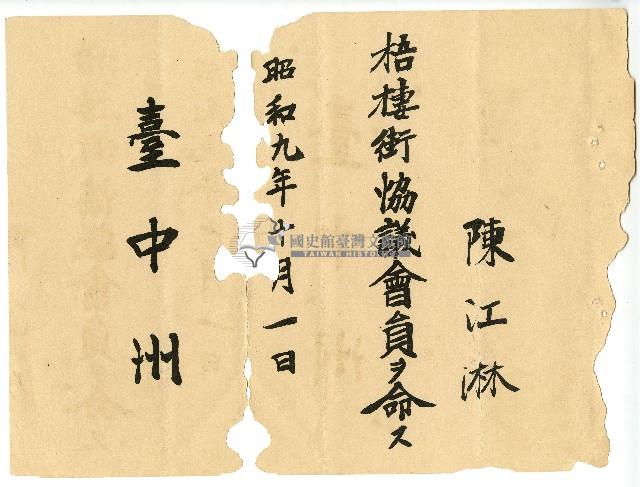 陳江淋
梧棲街協議會員ヲ命ス
昭和九年十月一日
臺中州
國史館臺灣文獻館
TAIWAN HISTORICA